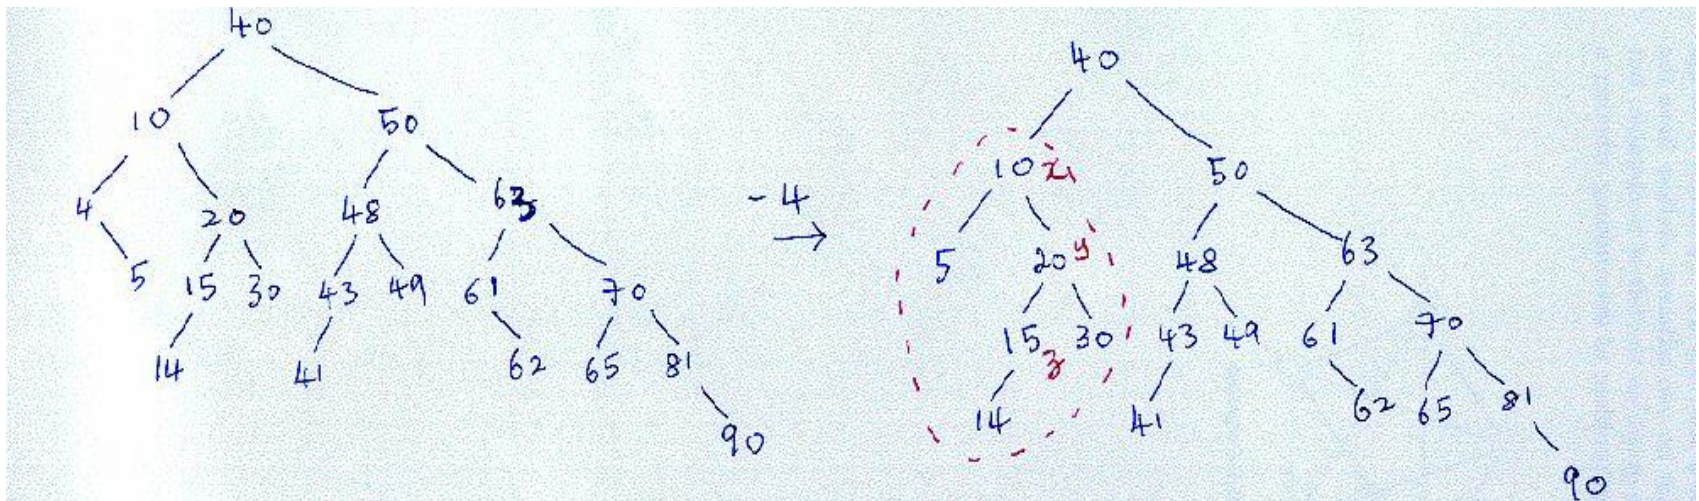 40
10 50
4 20 48 63
5 15 30 43 49 61 70
14 41 62 65 81
90
-4
40
10 x 50
5 20 y 48 63
15 z 30 43 49 61 70
14 41 62 65 81
90